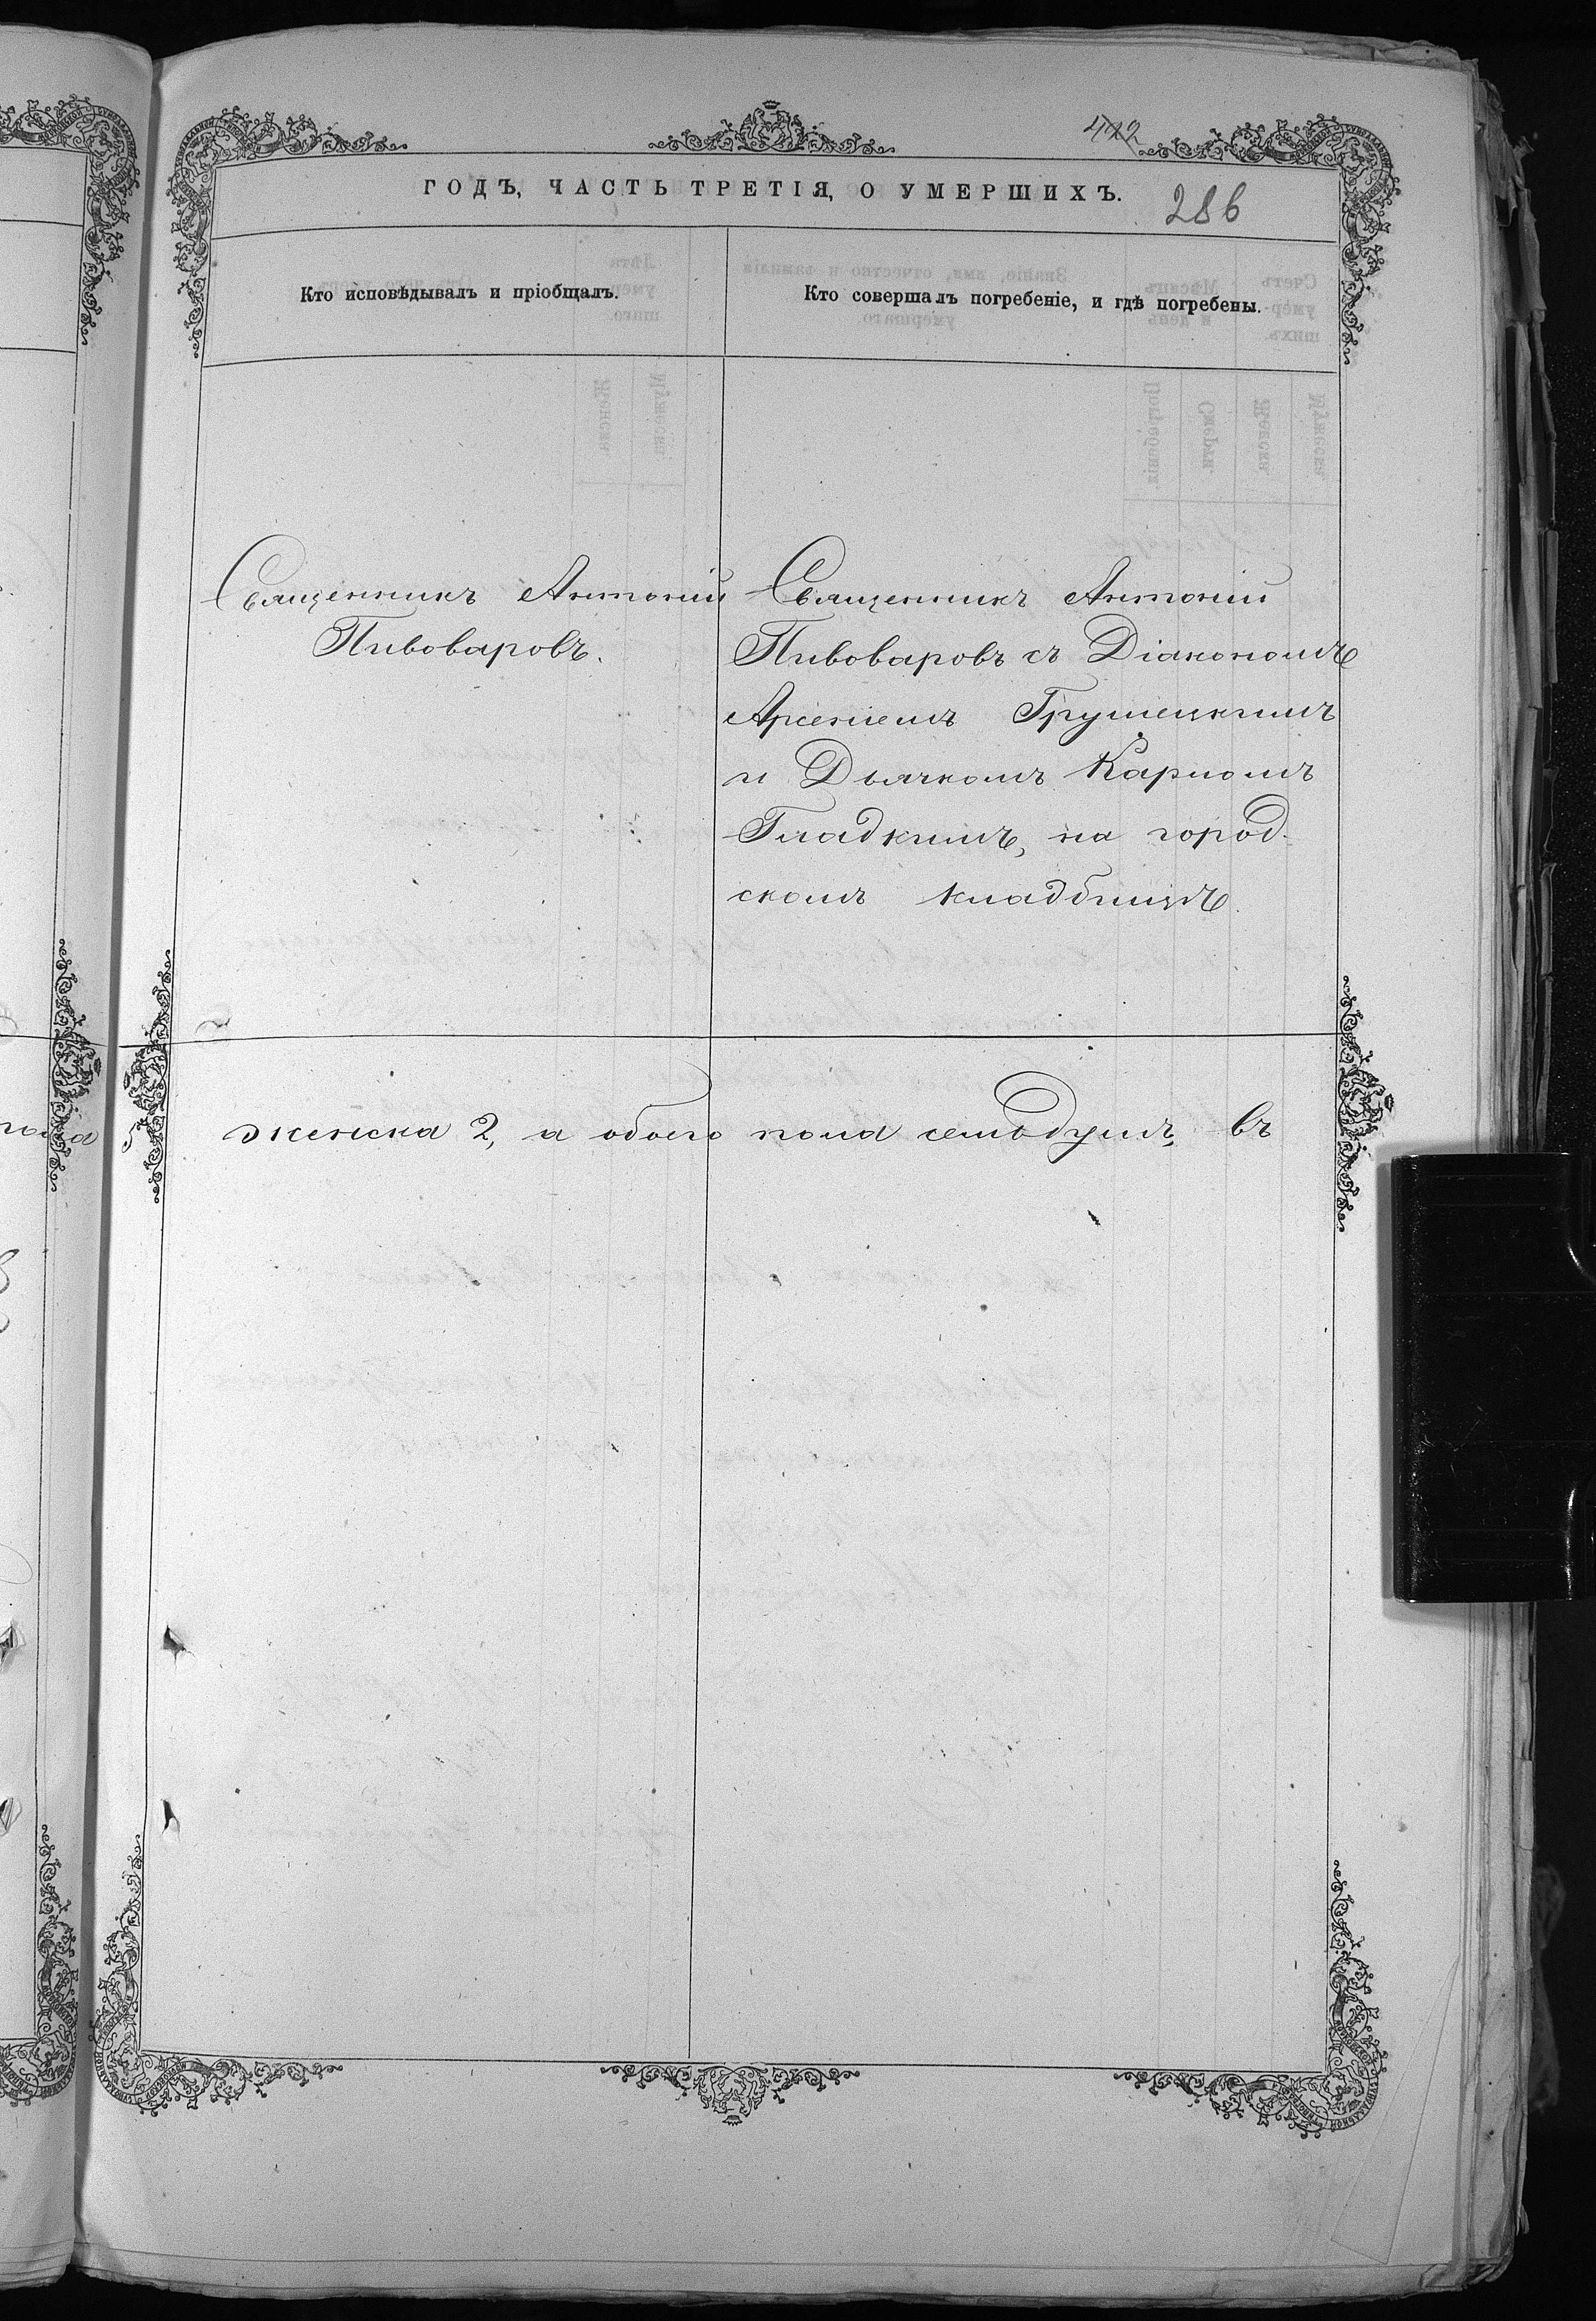 412
ГОДЪ, ЧАСТЬ ТРЕТІЯ, О УМЕРШИХЪ.
286
Кто исповѣдывалъ и пріобщалъ.
Кто совершалъ погребеніе, и гдѣ погребены.
Священникъ Антоній
Пивоваровъ.
Священникъ Антоній
Пивоваровъ съ Діакономъ
Арсеніемъ Грушецкимъ
и Дьячкомъ Карпомъ
Гладкимъ, на город-
скомъ кладбищѣ.
женска 2, а обоего пола семь душъ, въ